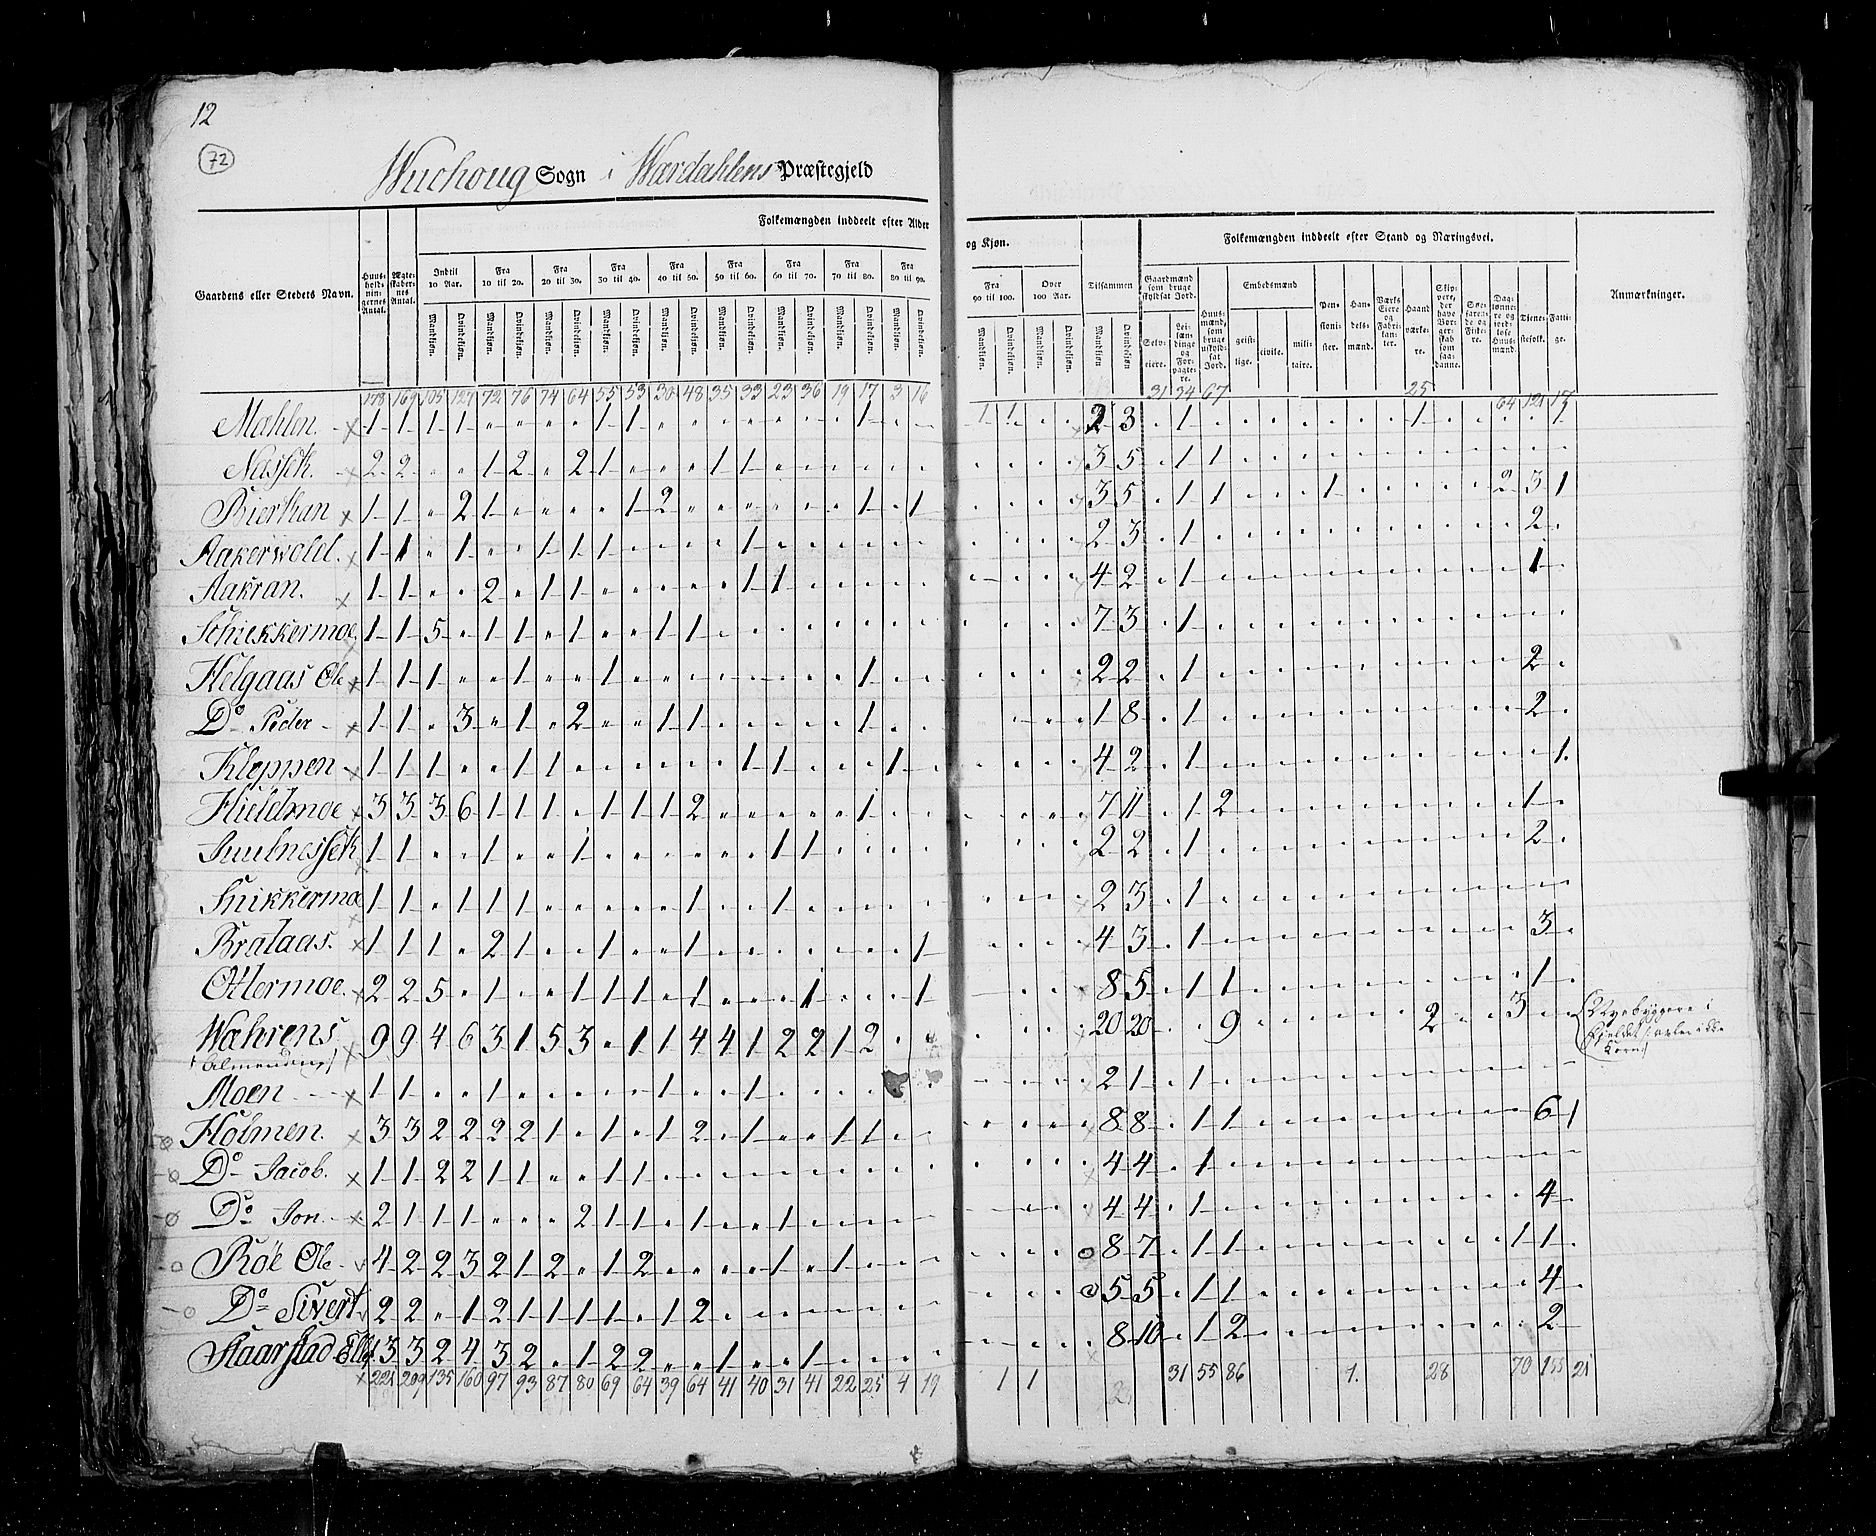 12
72
Wuchoug Sogn i Wærdahlens Præstegjeld
Folkemængden inddeelt efter Alder og Kjøn.
Folkemængden inddeelt efter Stand og Næringsvei.
Gaardens eller Stedets Navn.
Huus-holdnin-gernes Antal.
Ægte-skaber-nes Antal.
Indtil 10 Aar.
Fra 10 til 20.
Fra 20 til 30.
Fra 30 til 40.
Fra 40 til 50.
Fra 50 til 60.
Fra 60 til 70.
Fra 70 til 80.
Fra 80 til 90.
Fra 90 til 100.
Over 100 Aar.
Tilsammen
Gaardmænd som bruge skyldsat Jord.
Embedsmænd
Anmærkninger.
Mandkiøn. Qvindekiøn.
Selv-eiere.
Lei-lændinge og For-pagte-re.
Huus-mænd, som bruge uskyld-sat Jord.
geist-lige. civile. mili-taire.
Pen-sioni-ster.
Han-dels-mænd.
Værks Eiere og Fabri-kan-ter.
Haand værke-re.
Skip-pere, der have Bor-ger-skab som saa-danne.
Søe-farende og Fiske-re.
Dag-lønne-re og jord-løse Huus-mænd.
Tiene-stefolk.
Fatti-ge.
178 169 105 127 72 76 74 64 55 53 30 48 35 33 23 36 19 17 3 16 31 34 67 25 64 121 17
Mæhlen 1 1 1 1 1 1 1 1 1 2 3 1 1 1
Nessek 2 2 1 2 2 1 1 1 3 5 1 1
Bierkan 1 1 2 1 1 2 1 1 3 5 1 1 1 2 3 1
Aakerwold 1 1 1 1 1 1 1 2 3 1 2
Aakran. 1 1 2 1 1 1 1 4 2 1 1
Schiekkermoe 1 1 5 1 1 1 1 1 7 3 1
Helgaas Ole 1 1 1 1 1 1 2 2 1 2
Do Peder 1 1 3 1 2 1 1 1 1 8 1 2
Kleppen 1 1 1 1 1 1 1 1 4 2 1 1
Hieldmoe 3 3 3 6 1 1 1 1 1 1 2 1 7 11 1 2 1
Juulnessek 1 1 1 1 1 1 2 2 1 2
Snikkermoe 1 1 1 1 1 1 1 2 3 1
Brataas. 1 1 1 2 1 1 1 1 4 3 1 3
Ottermoe. 2 2 5 1 1 1 1 1 1 1 1 8 5 1 1 1
Wahrens 9 9 4 6 3 1 5 3 1 1 4 4 1 2 2 1 2 20 20 9 2 3 Nyebyggere i
Almending Fjeldet
Moen 1 1 1 1 1 2 1 1
Holmen. 3 3 2 2 2 2 1 1 1 2 1 1 1 8 8 1 1 6 1
Do Jacob. 1 1 2 2 1 1 1 1 4 4 1
Do Jon. 2 1 1 1 2 1 1 1 1 4 4 1 4
Röe Ole 4 2 2 3 2 1 2 1 2 1 1 8 7 1 1 1 1
Do Sivert 2 2 1 2 1 1 1 1 1 2 5 5 1 1 4
Staarstad 3 3 2 4 3 2 1 2 2 1 1 8 10 1 2 2
221 209 135 160 97 93 87 80 69 64 39 64 41 40 31 41 22 25 4 19 1 1 31 55 86 1. 28 70 155 21